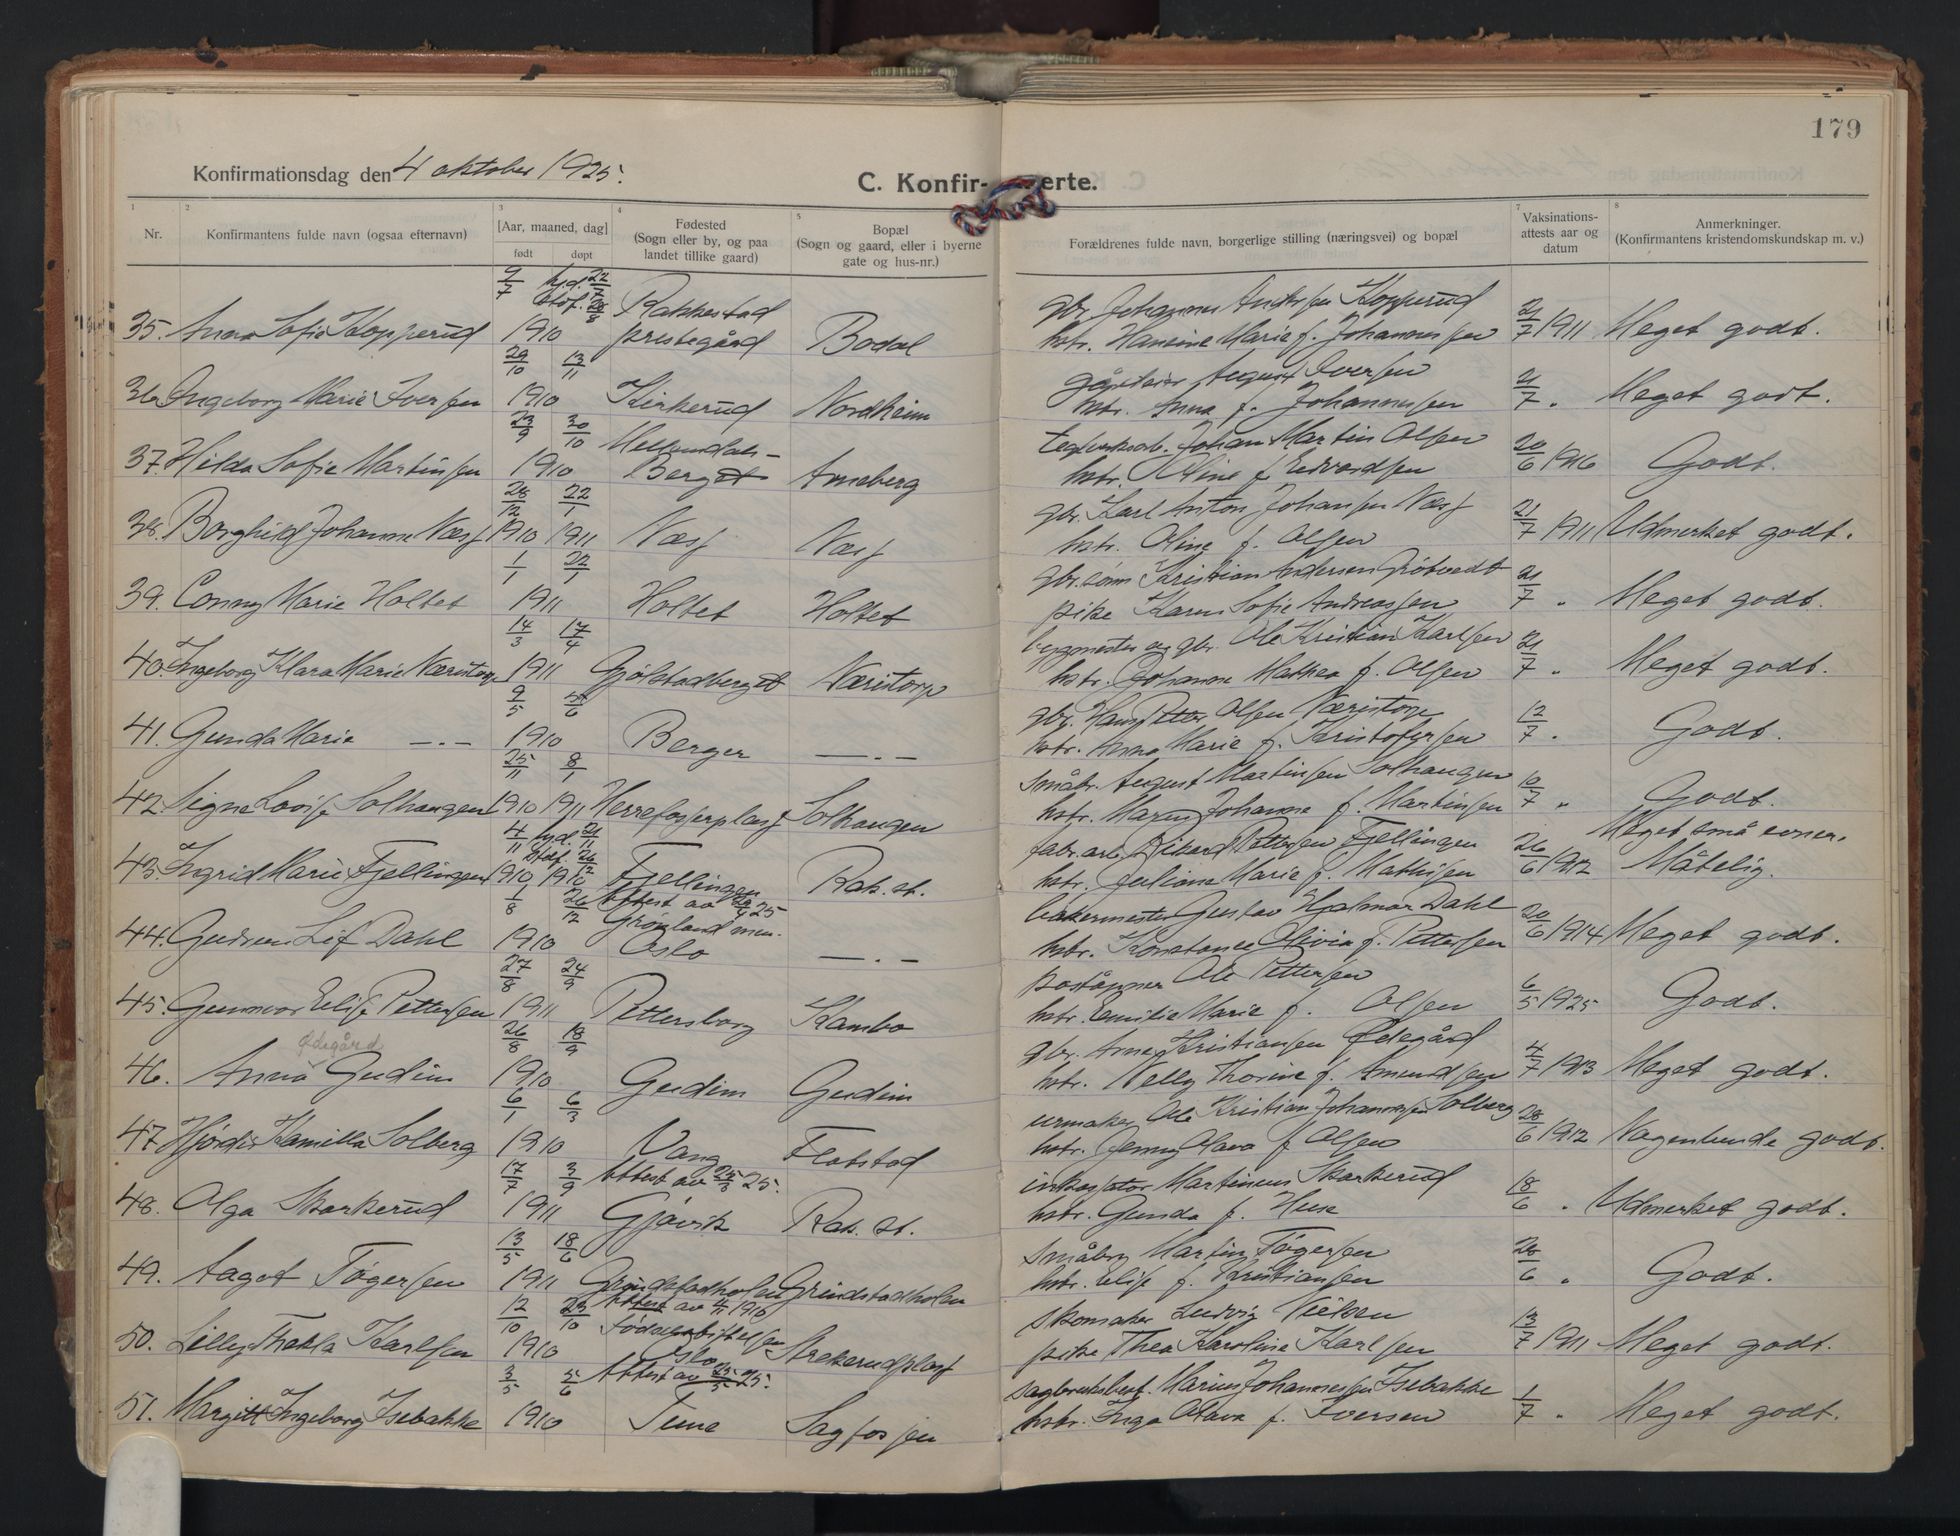 179
Konfirmationsdag den 4 oktober 1925.
C. Konfir- erte.
1 2 3 4 5 7 8
Nr.
Konfirmantens fulde navn (ogsaa efternavn)
[Aar, maaned, dag]
født døpt
Fødested
(Sogn eller by, og paa
landet tillike gaard)
Bopæl
(Sogn og gaard, eller i byerne
gate og hus-nr.)
Forældrenes fulde navn, borgerlige stilling (næringsvei) og bopæl
Vaksinations-
attests aar og
datum
Anmerkninger.
(Konfirmantens kristendomskundskap m. v.)
9/7 hjd. 22/7 Rakkestad gbr. Johannes Andersen Kopperud
35. Anna Sofie Kopperud 1910 prestegård Bodal hstr. Hansine Marie f. Johannessen 21/7 1911 Meget godt.
29/10 13/11 August Iversen
36 Ingeborg Marie Iversen 1910 Kirkerud Nordheim hstr. Anna f. Johannessen 21/7 " Meget godt.
23/9 30/10 teglverksarb. Johan Martin Olsen
37. Hilda Sofie Martinsen 1910 Berget Arneberg hstr. Oline f. Edvardsen 20/6 1916 Godt.
28/12 22/1 gbr. Karl Anton Johansen Næss
38. Borghild Johanne Næss 1910 1911 Næss Næss hstr. Oline f. Olsen 21/7 1911 Udmerket godt.
1/1 22/1 gbr. sønn Kristian Andersen Grøtvedt
39. Conny Marie Holtet 1911 Holtet Holtet pike Karen Sofie Andreassen 21/7 " Meget godt.
14/3 17/4 bygmester og gbr. Ole Kristian Karlsen
40. Ingeborg Klara Marie Næristorp 1911 Gjølstadberget Næristorp hstr. Johanne Mathea f. Olsen 21/7 " Meget godt.
9/5 5/6 gbr. Hans Petter Olsen Næristorp
41. Gunda Marie —.— 1910 Berger —.— hstr. Anna Marie f. Kristofersen 12/7 " Godt.
25/11 8/1 småbr. August Martinsen Solhaugen
42. Signe Lovise Solhaugen 1910 1911 Herrefosserplass Solhaugen hstr. Maren Johanne f. Martinsen 10/7 " Godt.
4/11 hjd. 21/11 fabr. arb. Rikard Pettersen Fjellingen Meget små evner.
43. Ingrid Marie Fjellingen 1910 1910 Fjellingen Rak. st. hstr. Juliane Marie f. Mathisen 26/6 1912 Måtelig.
1/8 26/12 Attest av 29/4 25 Grønland men. bakermester Gustav Hjalmar Dahl
44. Gudrun Lif Dahl 1910 Oslo —.— hstr. Konstance Olivia f. Pettersen 20/6 1914 Meget godt.
27/8 24/9 poståpner Ole Pettersen
45. Gunvor Elise Pettersen 1911 Pettersborg Kambo hstr. Emilie Marie f. Olsen 6/5 1925 Godt.
Ødegård
26/8 18/9 gbr. Arne Kristiansen Ødegård
46. Anna Gudim 1910 Gudim Gudim hstr. Nelly Thorine f. Amundsen 4/7 1913 Meget godt.
6/1 6/3 urmaker Ole Kristian Johannessen Solberg
47 Hjørdis Kamilla Solberg 1910 Vang Flatstad hstr. Jenny Olava f. Olsen 28/6 1912 Nogenlunde godt.
17/7 3/9 Attest av 25/8 25. inkassator Martinius Skarkerud
48. Olga Skarkerud 1911 Gjøvik Rak. st. hstr. Gunda f. Huse 18/6 " Udmerket godt.
13/5 18/6 småbr. Martin Tøgersen
49. Aagot Tøgersen 1911 Grindstadholen Grindstadholen hstr. Elise f. Kristiansen 28/6 " Godt.
12/10 23/10 Attest av 4/11 1910 Fødselsstiftelsen skomaker Ludvig Nilsen
50. Lilly Thekla Karlsen 1910 Oslo Strekerudplass pike Thea Karoline Karlsen 13/7 1911 Meget godt.
3/5 5/6 Attest av 25/5 25. sagbruksbest. Marius Johannessen Isebakke
51. Margitt Ingeborg Isebakke 1910 Tune Sagfossen hstr. Inga Olava f. Iversen 1/7 " Meget godt.